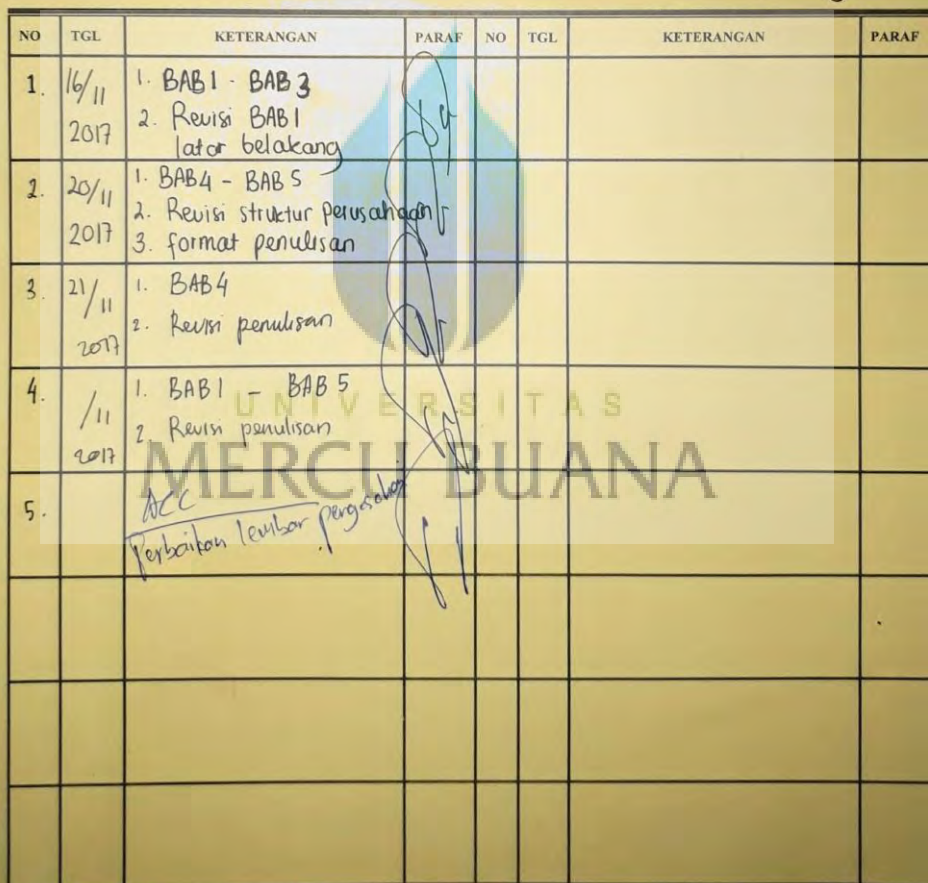 NO TGL KETERANGAN PARAF NO TGL KETERANGAN PARAF
1. 16/11 2017
1. BAB 1 - BAB 3
2. Revisi BAB 1
latar belakang
2. 20/11 2017
1. BAB 4 - BAB 5
2. Revisi struktur perusahaan
3. format penulisan
3. 21/11 2017
1. BAB 4
2. Revisi penulisan
4. /11 2017
1. BAB 1 - BAB 5
2. Revisi penulisan
UNIVERSITAS
MERCU BUANA
5. ACC
Perbaikan lembar pengesahan